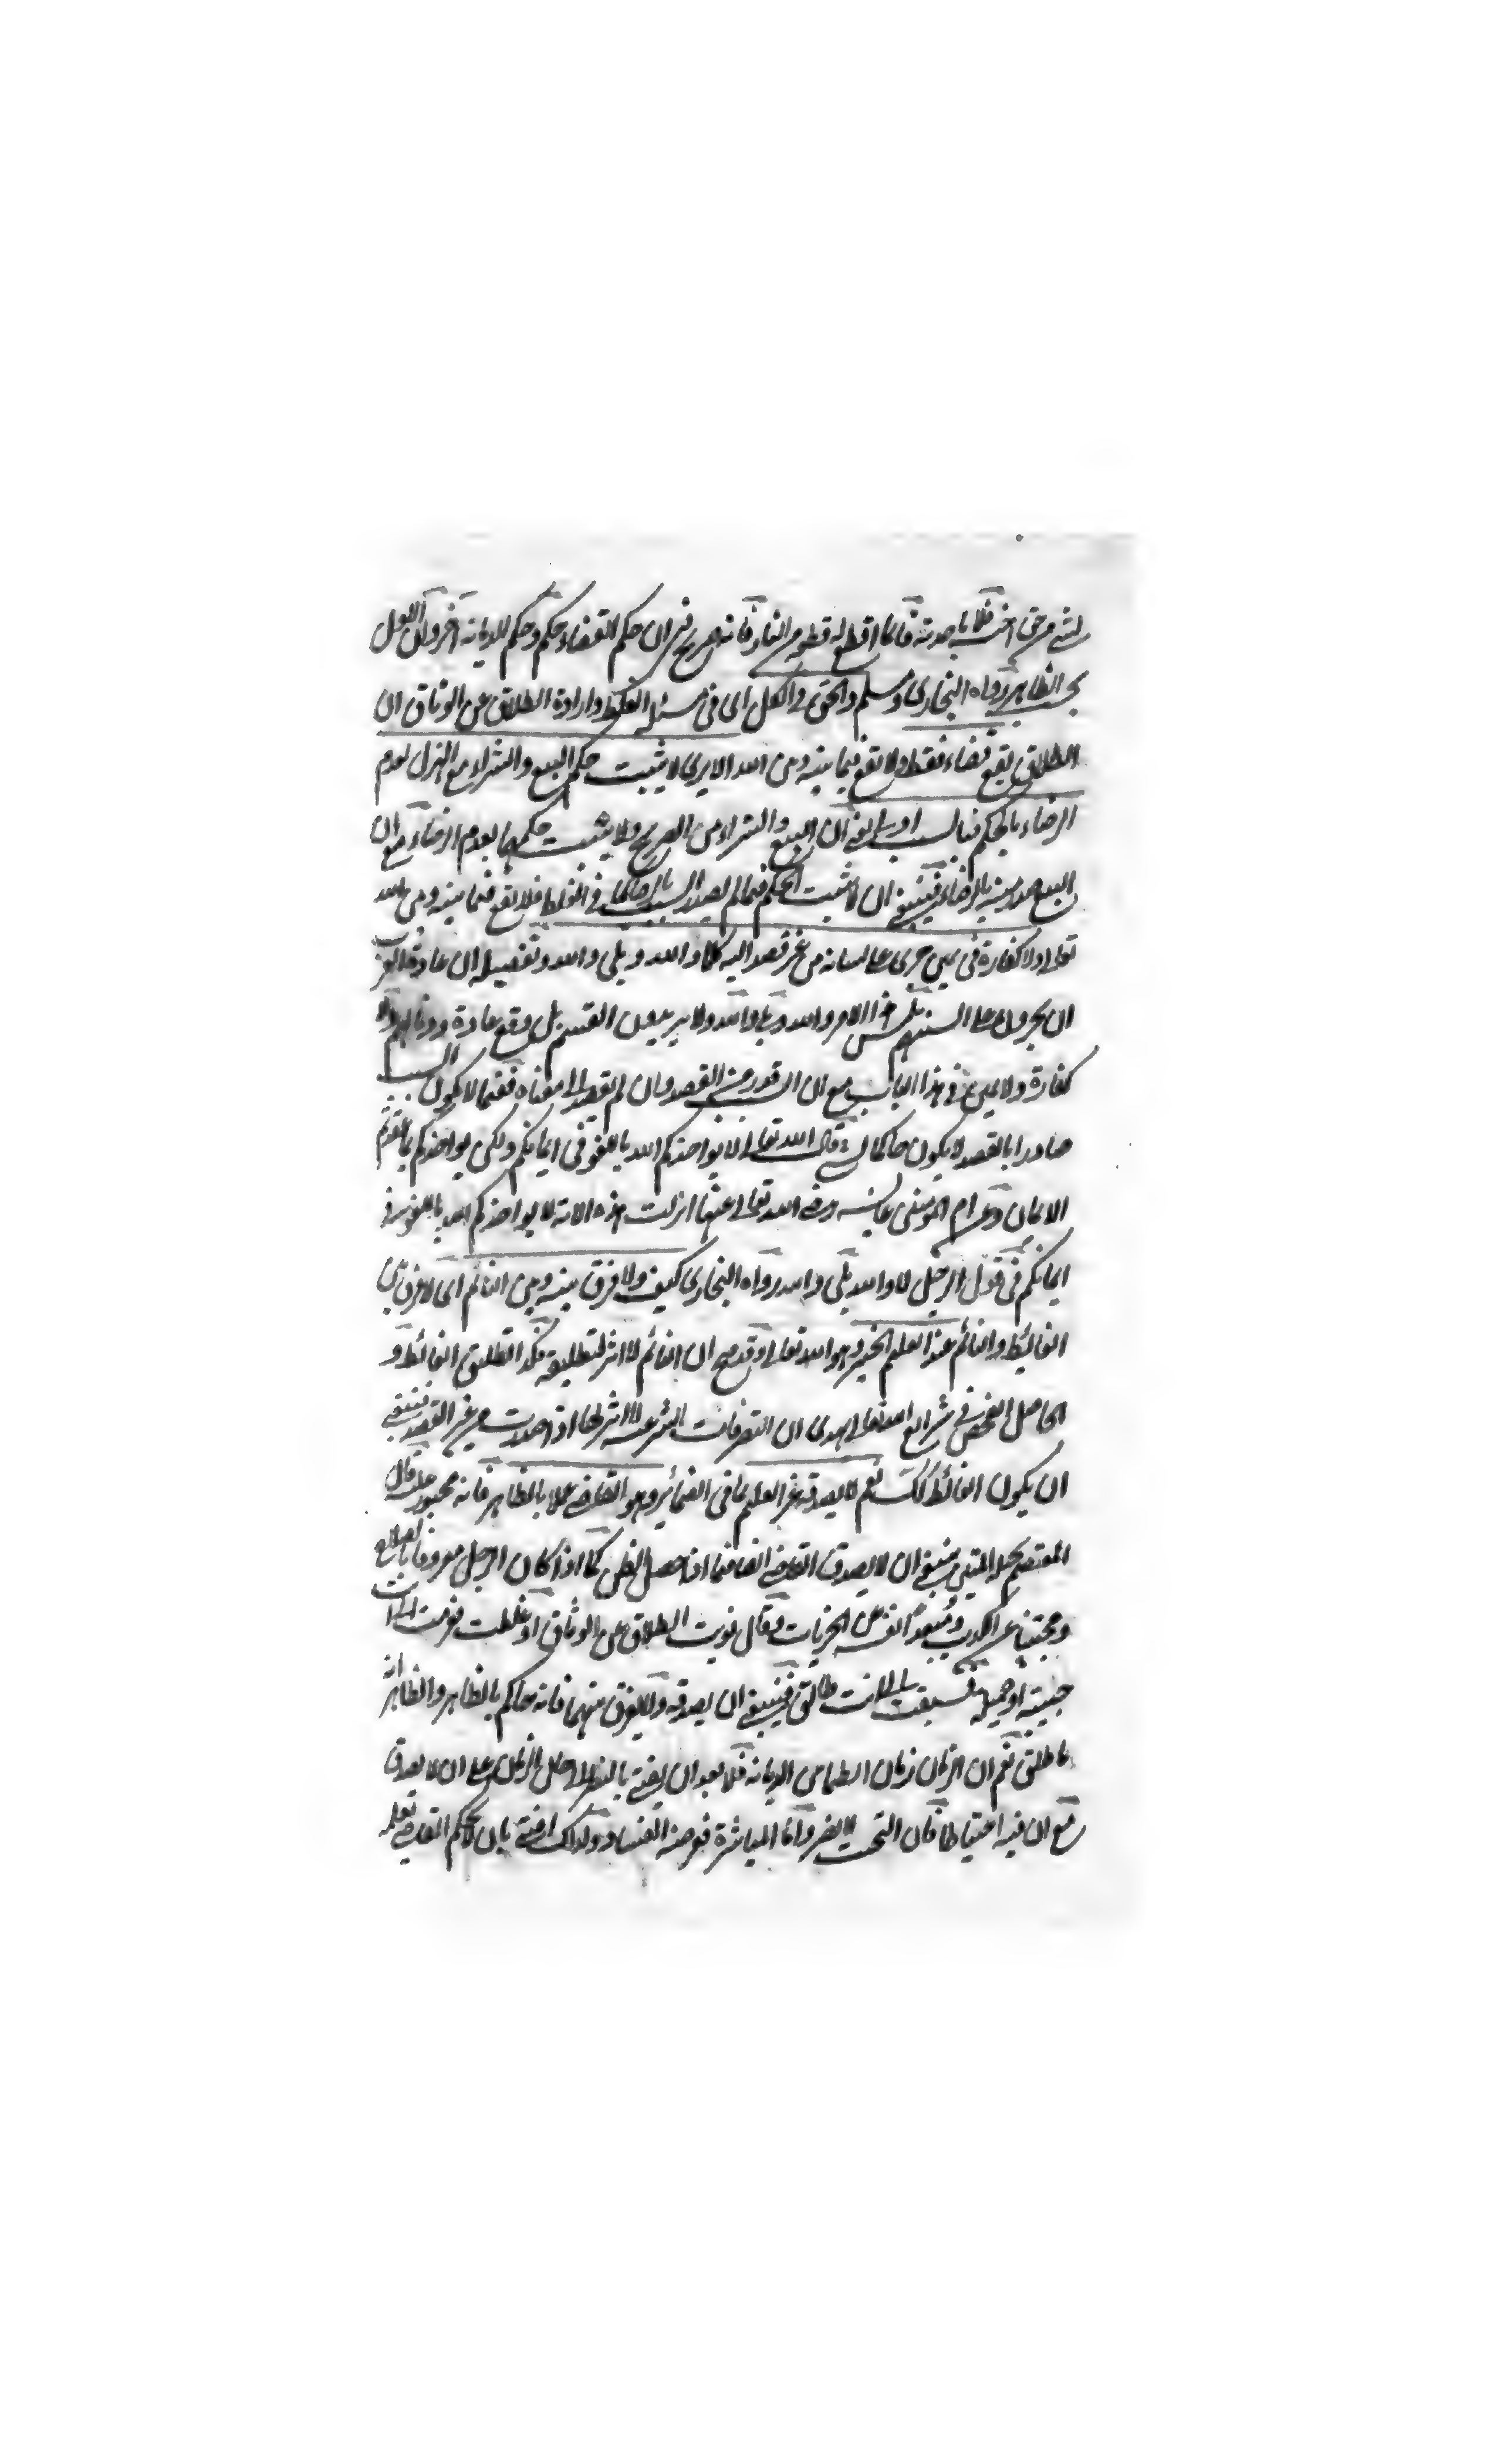 بشئ من حق اخيه فلا ياخذنه فانما اقطع له قطعة من النار فانه صريح في ان حكم القضاء حكم وحكم للديانة اخر وان الاول
بحسب الظاهر رواه البخاري ومسلم والحق في الكل اى في مسئلة الغلط وارادة الطلاق عن الوثاق ان
الطلاق يقع قضاء فقط ولا يقع فيما بينه وبين الله الا يرى لا يثبت حكم البيع والشراء مع الهزل لعدم
الرضاء بالحكم فبالسبب اولى يعني ان البيع والشراء من الصريح ولا يثبت حكمهما بعدم الرضاء مع ان
البيع صدر منه بالرضاء فينبغي ان لا يثبت الحكم فيما لم يصدر السبب بالرضا كما في الغلط فلا يقع فيما بينه وبين الله
تعالى ولا كفارة في يمين جرى على لسانه من غير قصد اليه كلا والله وبلى والله وتفصيله ان عادة العرب
ان يجرون على السنتهم هذا الامر والله وبلى والله ولا يريدون القسم بل وقع عادة ولا
كفارة ولا يمين في هذا الباب مع ان السبب قد وقع من القصد وان لم يقصد الى معناه ففيما لا يكون السبب
صادرا بالقصد لا يكون حاكما قال الله تعالى لا يؤاخذكم الله باللغو في ايمانكم ولكن يؤاخذكم بما عقدتم
الايمان وعن ام المؤمنين عائشة رضي الله تعالى عنها انزلت هذه الاية لا يؤاخذكم الله باللغو في
ايمانكم في قول الرجل لا والله بلى والله رواه البخاري كيف ولا فرق بينه وبين النائم اى لا فرق بين
الغالط والنائم عند العليم الخبير وهو الله تعالى وقد صح ان النائم لا اثر لتطليقه فكذا تطليق الغالط و
الحاصل الفحص في شرائع الله تعالى يهدى ان التصرفات الشرعية لا اثر لها اذا صدرت من غير القصد فينبغي
ان يكون الغالط كك نعم لا يصدقه غير العليم بما في الضمائر وهو القاضي عملا بالظاهر فانه مجبور عليه قال
المعتصم بحبله المتين ينبغي ان لا يصدق القاضي ايضا فيما اذا حصل الظن كما اذا كان الرجل معروفا بالصلاح
ومجتنبا عن الكذب ومبعدا نفسه عن الحرمات وقال نويت الطلاق عن الوثاق او غلطت فرمت ان انت
حبيبة او جميلة فسبقت الى انت طالق فينبغي ان يصدقه ولا يفرق بينهما فانه حاكم بالظاهر والظاهر انه
ما طلق نعم ان الزمان زمان الطمأ من الديانة فلا بعد ان يفتى بالنظر الى اهل الزمان على ان لا يصدق
مع ان فيه احتياطا فان التجنب لا يضر وانما المباشرة فوضته الفساد ولذلك افتى بان لا يحكم القاضي بعلمه